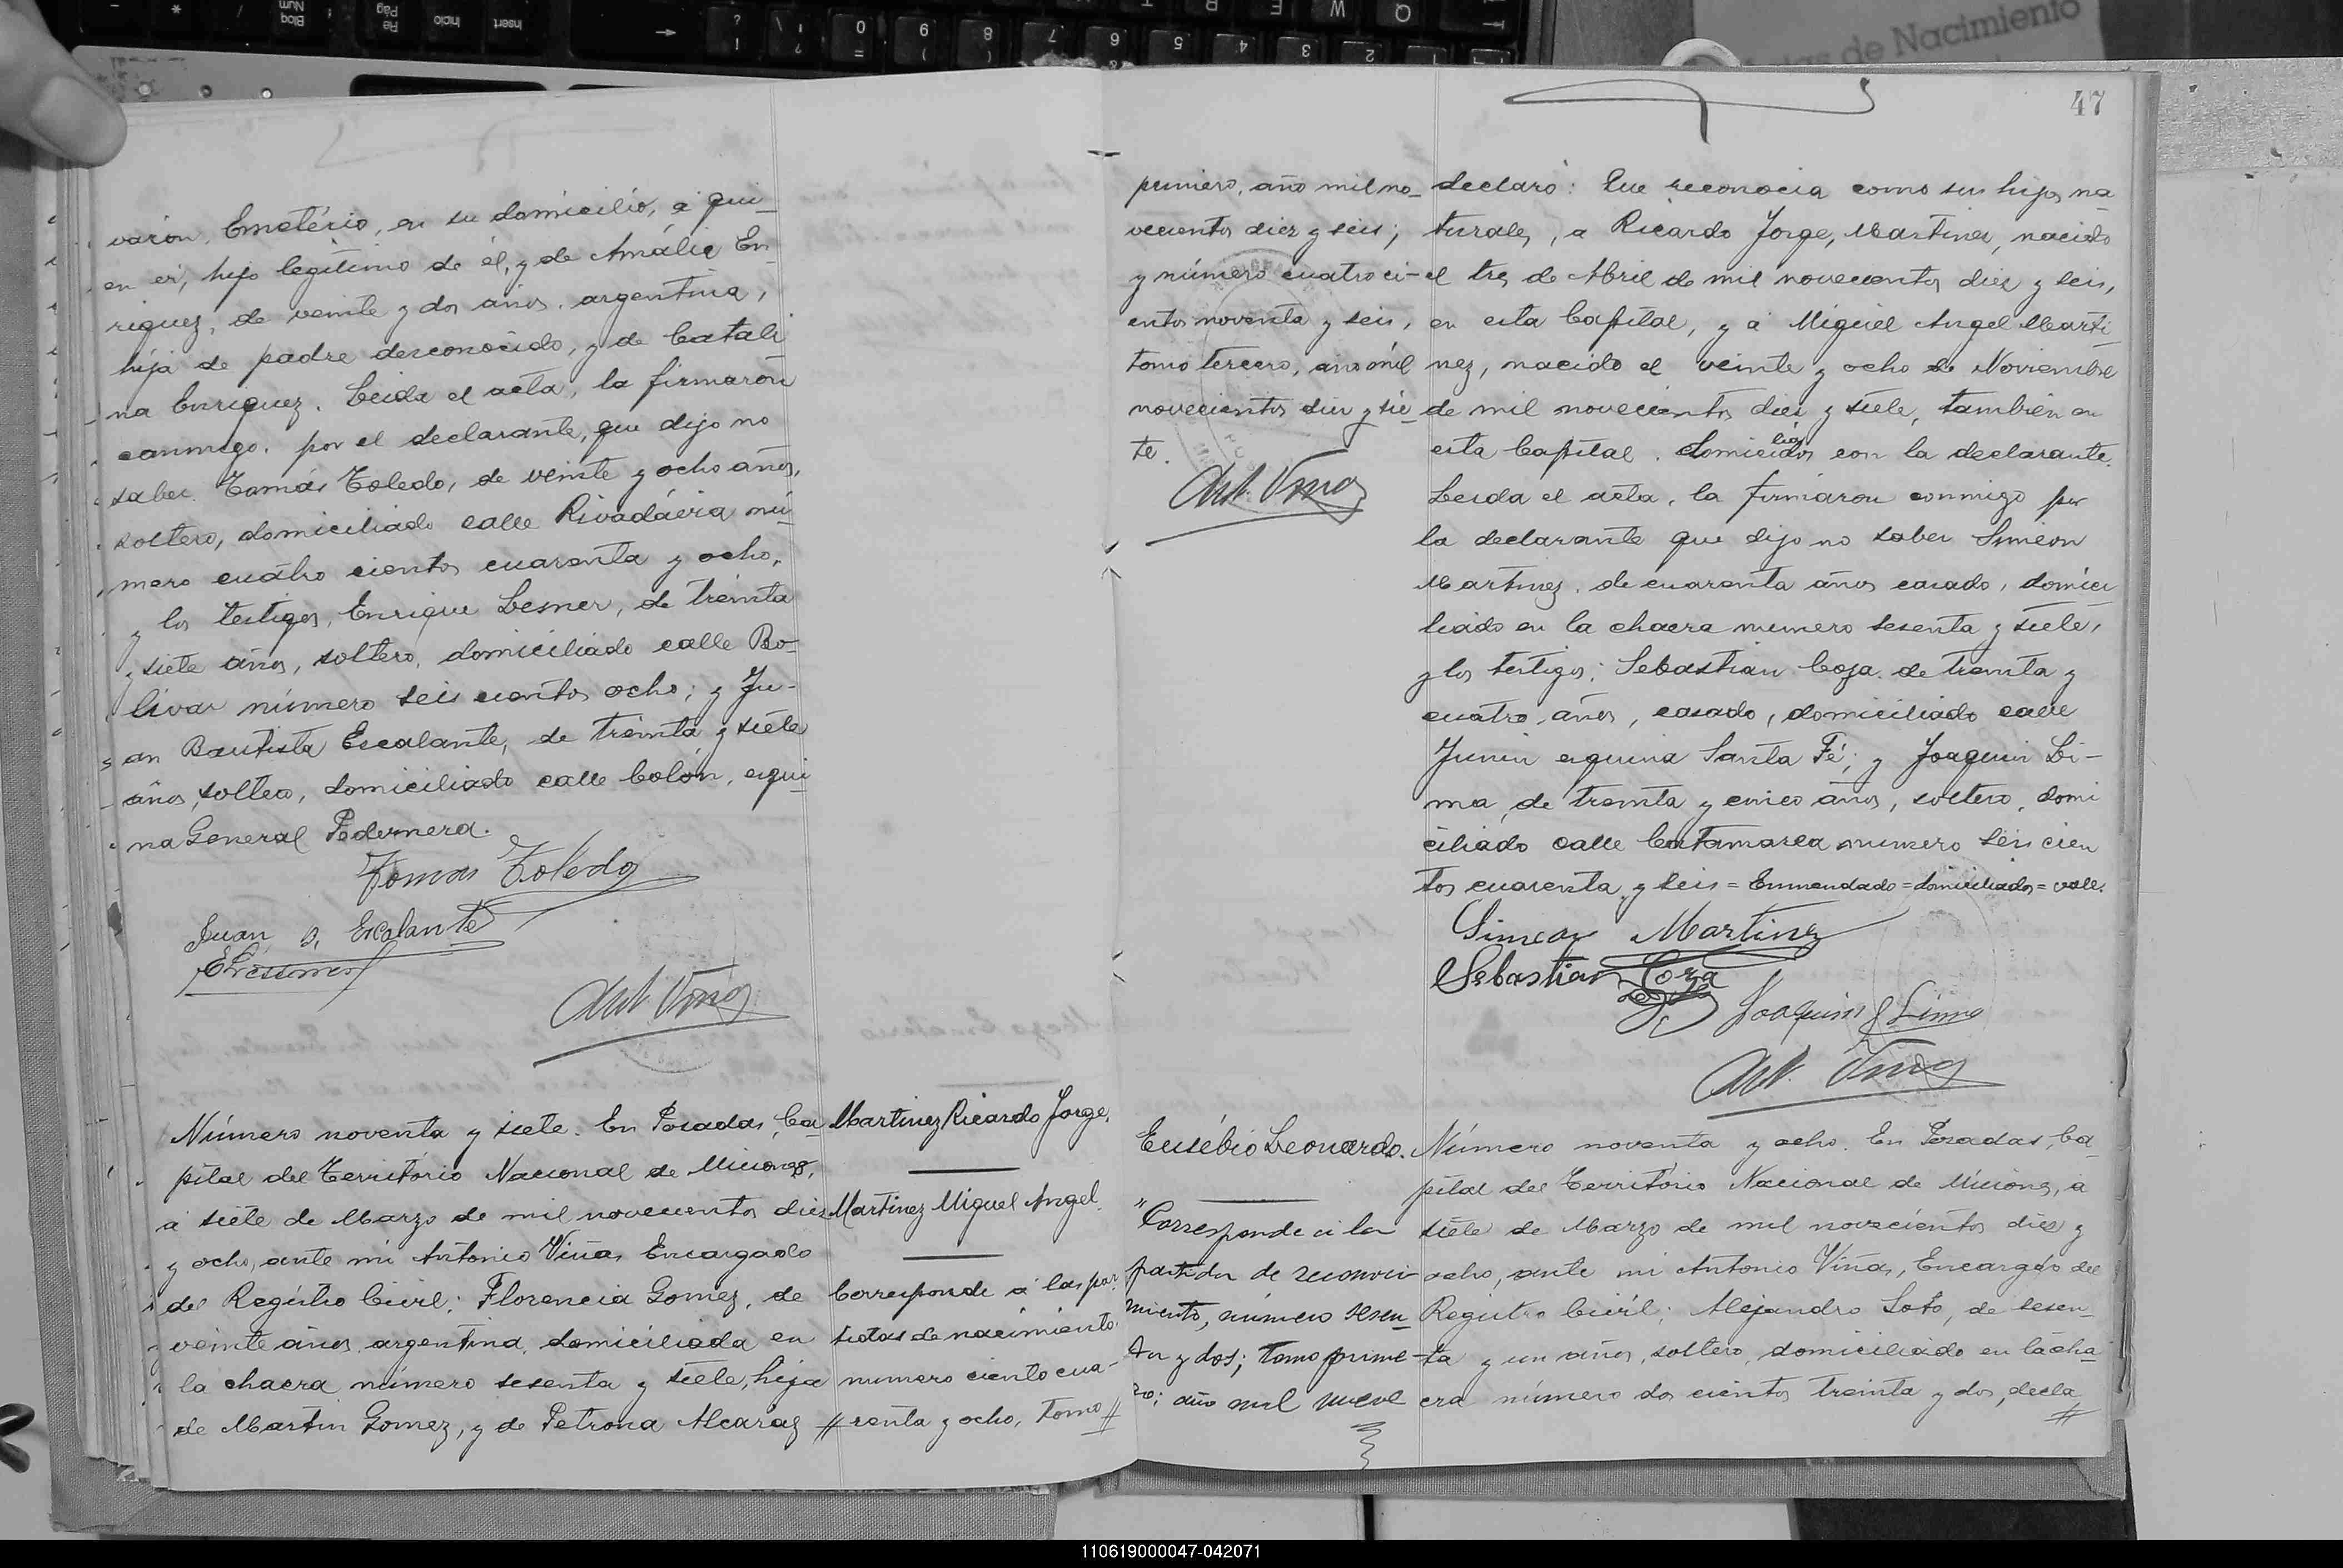 47
varón, Emetério, en su domicilio, a qui-
en er, hijo legítimo de él, y de Amália En-
riquez, de veinte y dos años, argentina,
hija de padre desconocido, y de Catali
na Enriquez. Leida el acta, la firmarón
conmigo, por el declarante, que dijo no
saber Tomás Toledo, de veinte y ocho años,
soltero, domiciliado calle Rivadávia nú-
mero cuatro cientos cuarenta y ocho,
y los testigos, Enrique Lesner, de treinta
y siete años, soltero, domiciliado calle Bo-
livar número seis cientos ocho; y Ju-
an Bautista Escalante, de treinta y siete
años, soltero, domiciliado calle Colón, esqui
na General Pedernera.
Tomas Toledo
Juan B. Escalante
Ant. Vinas
Número noventa y siete. En Posadas, Ca
pital del Território Nacional de Misiones,
a siete de Marzo de mil novecientos diez
y ocho, ante mi Antonio Viñas, Encargado
del Registro Civil: Florencia Gomez, de
veinte años, argentina, domiciliada en
la chacra número sesenta y siete, hija
de Martin Gomez, y de Petrona Alcaráz //
Martinez Ricardo Jorge.
Martinez Miguel Angel.
Corresponde á las par
tidas de nacimiento
numero ciento cua-
renta y ocho, Tomo //
primero, año mil no-
vecientos diez y seis;
y número cuatroci-
entos noventa y seis,
tomo tercero, año mil
novecientos diez y sie
te.
Ant. Vinas
declaró: Que reconocia como sus hijos na
turales, a Ricardo Jorge, Martinez, nacido
el tres de Abril de mil novecientos diez y seis,
en esta Capital, y a Miguel Angel Marti
nez, nacido el veinte y ocho de Noviembre
de mil novecientos diez y siete, también en
esta Capital. domiciliados con la declarante.
Leida el acta, la firmaron conmigo por
la declarante que dijo no saber Simeon
Martinez, de cuarenta años casado, domici
liado en la chacra numero sesenta y siete,
y los testigos: Sebastian Coza de treinta y
cuatro años, casado, domiciliado calle
Junin esquina Santa Fé; y Joaquin Li-
ma, de treinta y cinco años, soltero, domi
ciliado calle Catamarca numero seis cien
tos cuarenta y seis = Enmendado = domiciliados = vale.
Simeon Martinez
Sebastian Coza
Joaquin Lima
Ant. Vinas
Eusébio Leonardo.
"Corresponde a la
partida de reconoci-
miento, número sesen-
ta y dos; Tomo prime-
ro; año mil nueve
Número noventa y ocho. En Posadas, Ca-
pital del Território Nacional de Misiones, a
siete de Marzo de mil novecientos diez y
ocho, ante mi Antonio Viñas, Encargado del
Registro Civil; Alejandro Soto, de sesen-
ta y un años, soltero, domiciliado en la cha
cra número dos cientos treinta y dos, decla
//
110619000047-042071